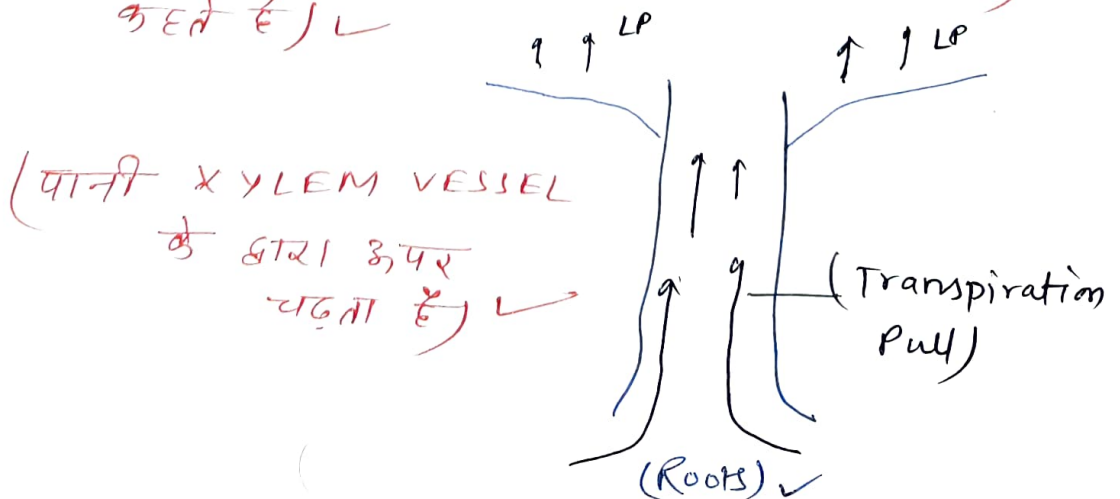 कहते हैं) ✓
LP
LP
(पानी XYLEM VESSEL
के द्वारा ऊपर
चढ़ता है) ✓
(Transpiration
Pull)
(Roots) ✓